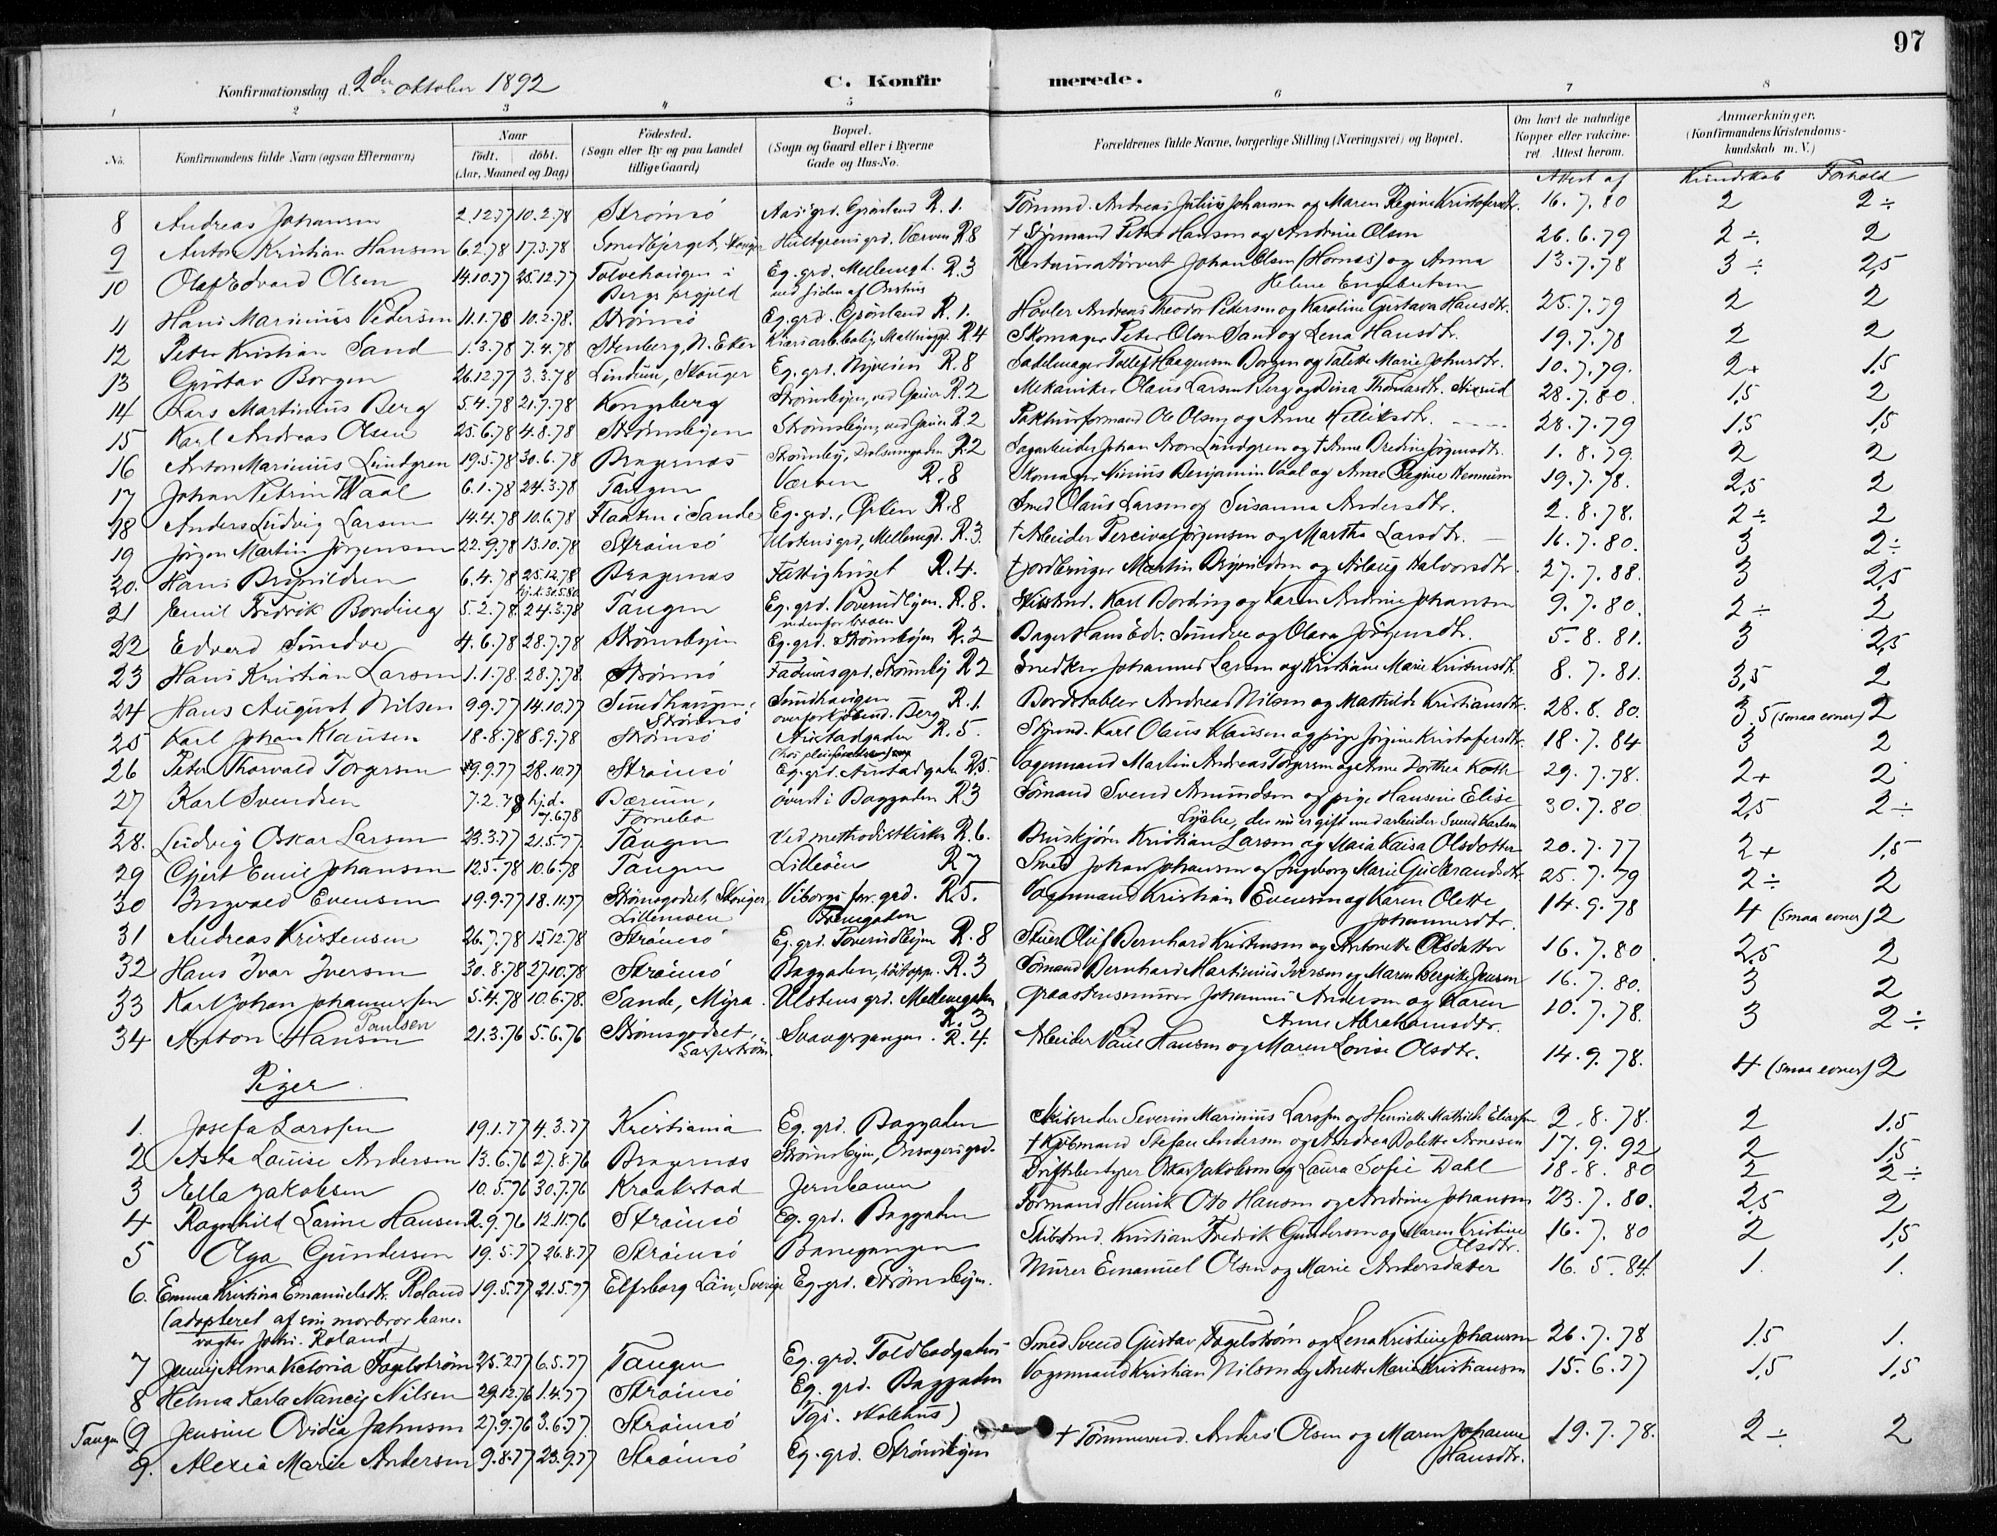 97
Konfirmationsdag d. 2den oktober 1892
C. Konfirmerede.
1 2 3 4 5 6 7 8
No. Konfirmandens fulde Navn (ogsaa Efternavn) Naar født. døbt. (Aar, Maaned og Dag) Fødested. (Sogn eller By og paa Landet tillige Gaard) Bopæl. (Sogn og Gaard eller i Byerne Gade og Hus-No. Forældrenes fulde Navne, borgerlige Stilling (Næringsvei) og Bopæl. Om havt de naturlige Kopper eller vaccineret. Attest herom. Anmærkninger. (Konfirmandens Kristendomskundskab m. V.)
Attest af Kundskab Forhold
8 Andreas Johansen 2.12.77 10.2.78 Strømsø Aasgrd. Grønland R. 1. Andreas Julius Johansen og Maren Regine Kristofersdtr. 16.7.80 2 2÷
9 Anton Kristian Hansen 6.2.78 17.3.78 Smedbjerget, Skouger Hultgrens grd. Værven R. 8 † Styrmand Peter Hansen og Andrine Olsen 26.6.79 2÷ 2
10 Olaf Edvard Olsen 14.10.77 25.12.77 Tolvehaugen i Bergs prgjeld Eg. grd. Mellemgt. R. 3 ved siden af Restauratørvert Johan Olsen (Hornæs) og Anna Helene Engebretsen 13.7.78 3÷ 2,5
11 Hans Marinius Pedersen 11.1.78 10.2.78. Strømsø Eg. grd. Grønland R. 1. Høvler Andreas Theodor Pedersen og Karoline Gustava Hansdtr. 25.7.79 2 2
12 Peter Kristian Sand 1.3.78 7.4.78 Stenberg, N. Eker R. 4 Skomager Peter Olsen Sand og Lena Hansdtr. 19.7.78 2 2
13 Gustav Borgen 26.12.77 3.3.78 Lindum, Skouger Eg. grd. Nyveien R. 8 Sadelmager Tollef Haagensen Borgen og Talette Marie Johnsdtr. 10.7.79. 2+ 1,5
14 Lars Martinius Berg 5.4.78 21.7.78 Kongsberg Strømsbyen, ved R. 2 Mekaniker Olaus Larsen Berg og Dina Thomasdtr. Stixrud 28.7.80. 1,5 2
15 Karl Andreas Olsen 25.6.78 4.8.78 Strømsbyen Strømsbyen, ved R. 2 Pakhusformand Ole Olsen og Anne Helliksdtr. 28.7.79 1,5 1,5
16 Anton Marinius Lundgren 19.5.78 30.6.78 Bragernæs R. 2 Sagarbeider Johan Aron Lundgren og † Anne Dredine Jørgensdtr. 1.8.79. 2 2
17 Johan Petrin Waal 6.1.78 24.3.78 Tangen Værven R. 8 Skomager Benjamin Vaal og Anne Regine Hennum 19.7.78. 2,5 2
18 Anders Ludvig Larsen 14.4.78 10.6.78 Flaaten i Sande Eg. grd., Ørken R. 8 Smed Olaus Larsen og Susanna Andersdtr. 2.8.78. 2÷ 2
19 Jørgen Martin Jørgensen 22.9.78 13.10.78 Strømsø Ulstens grd, Mellemgd. R. 3. † Arbeider Percival Jørgensen og Martha Larsdtr. 16.7.80. 3 2÷
20. Hans Brynildsen 6.4.78 25.12.78 kj. k. 30.5.80. Bragernæs Fattighuset R. 4. † Jordbruger Martin Brynildsen og Aslaug Halvorsdtr. 27.7.88. 3 2,5
21 Emil Fredrik Bording 5.2.78. 24.3.78 Tangen Eg. grd. R. 8. nedenfor broen Karl Bording og Karen Andrine Johansen 9.7.80. 2÷ 2
22 Edvard Sundve 4.6.78 28.7.78 Strømsbyen Eg. grd. Strømsbyen R. 2 Bager Hans Edv. Sundve og Olava Jørgensdtr. 5.8.81. 3 2,5
23 Hans Kristian Larsen 1.1.78 28.7.78. Strømsø Fadums grd, Strømsby R. 2 Snedker Johannes Larsen og Kristiane Marie Kristensdtr. 8.7.81. 3,5 2
24 Hans August Nilsen 9.9.77 14.10.77 Sundhaugen, Strømsø Sundhaugen R. 1. overfor Berg Bordstabler Andreas Nilsen og Mathilde Kristiansdtr. 28.8.80. 3,5 (smaa evner) 2
25 Karl Johan Klausen 18.8.78 8.9.78 Strømsø Austadgaden R. 5. Styrmd. Karl Olaus Klausen og pige Jørgine Kristofersdtr. 18.7.84 3 2
26 Peter Thorvald Torgersen 9.9.77 28.10.77 Strømsø Eg. grd. Austadgaden R. 5. Vognmand Martin Andreas Torgersen og Anne Dorthea Koth 29.7.78. 2+ 2
27 Karl Svendsen 7.2.78 hj. d. 7.6.78 Bærum, Fornebo øverst i Baggaden R. 3 Sømand Svend Amundsen og pige Hansine Elise Lysbe, der nu er gift med arbeider Svend Karlsen 30.7.80 2,5 2÷
28. Ludvig Oskar Larsen 23.3.77 21.5.77 Tangen Ved methodistkirken R. 6. Kristian Larsen og Maia Kaisa Olsdotter 20.7.77 2+ 1,5
29 Gjert Emil Johansen 12.5.78 10.6.78 Tangen Lilleøen R. 7 Smed Johan Johansen og Ingeborg Marie Gudbrandsdtr. 25.7.79 2÷ 2
30 Ingvald Evensen 19.9.77 18.11.77 Strømsgodset, Skouger, Lillemoen Viborgs for. grd. R. 5. Tronegaden Vognmand Kristian Evensen og Karen Olette Johannesdtr. 14.9.78 4 (smaa evner) 2
31 Andreas Kristensen 26.7.78 15.12.78 Strømsø Eg. grd. R. 8 Stuer Oluf Bernhard Kristensen og Antonette Olsdatter 16.7.80. 2,5 2
32 Hans Ivar Iversen 30.8.78 27.10.78 Strømsø Baggaden, høit oppe. R. 3 Sømand Bernhard Martinius Iversen og Maren Bergitte Jensen 16.7.80. 3 2
33 Karl Johan Johannessen 5.4.78 10.6.78. Sande, Myra. Ulstens grd. Mellemgaden R. 3 Graastensmurer Johannes Andersen og Karen Anne Abrahamsdtr. 10.7.78. 3 2÷
34 Anton Hansen Paulsen 21.3.76 5.6.76 Strømsgodset, R. 4. Arbeider Paul Hansen og Maren Lovise Olsdtr. 14.9.78. 4 (smaa evner) 2
Piger
1. Josefa Larssen 19.1.77 4.3.77 Kristiania Eg. grd. Baggaden Skibsreder Severin Marinius Larssen og Henriette Mathilde Eliassen 2.8.78. 2 1,5
2 Asta Louise Andersen 13.6.76 27.8.76 Bragernæs Strømsbyen, Onsagers grd. † Kjøbmand Stefan Andersen og Andrea Dolette Arnesen 17.9.92 2 1,5
3 Ella Jakobsen 10.5.76 30.7.76 Kraakstad Jernbanen Driftsbestyrer Oskar Jakobsen og Laura Sofie Dahl 18.8.80 2 2÷
4 Ragnhild Larine Hansen 2.9.76 12.11.76 Strømsø Eg. grd. Baggaden Formand Henrik Otto Hansen og Andrine Johansen 23.7.80. 2,5 2
5 Olga Gundersen 19.5.77 26.8.77 Strømsø Banegangen Skibstmd. Kristian Fredrik Gundersen og Maren Kristine Olsdtr. 16.7.80 2 1,5
6. Emma Kristina Emanuelsdtr. Roland 19.5.77 21.5.77 Elfsborg Län, Sverige Eg. grd. Strømsbyen. Murer Emanuel Olsen og Marie Andersdatter 16.5.84. 1. 1.
(adopteret af sin morbror banevogter Johs. Roland)
7 Jenny Alma Victoria Fagelstrøm 25.2.77 6.5.77 Tangen Eg. grd. Toldbodgaden Smed Svend Gustav Fagelstrøm og Lena Kristine Johansen 26.7.78 1.5 1.
8 Helma Karla Nancy Nilsen 29.12.76 1.4.77 Strømsø Eg. grd. Baggaden Vognmand Kristian Nilsen og Anette Marie Kristiansen 15.6.77 1,5 1,5
Tangen (9 Jensine Ovidia Jahnsen 27.9.76 3.6.77. Strømsø Tgs. skolehus)
9. Alexia Marie Andersen 9.8.77 23.9.77 Strømsø Eg. grd. Strømsbyen † Tømmermd. Anders Olsen og Maren Johanne Hansdtr. 19.7.78. 2÷ 2